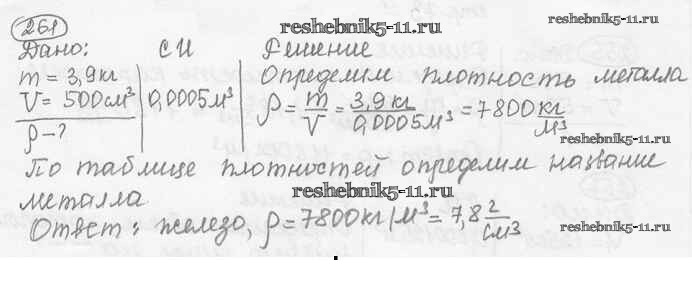 261
reshebnik5-11.ru
reshebnik5-11.ru
Дано: СИ Решение
m = 3,9кг Определим плотность металла
V = 500см³ 0,0005м³ ρ = m/V = 3,9кг/0,0005м³ = 7800 кг/м³
ρ – ?
reshebnik5-11.ru
По таблице плотностей определим название
металла
reshebnik5-11.ru
Ответ: железо, ρ = 7800кг/м³ = 7,8 г/см³
reshebnik5-11.ru